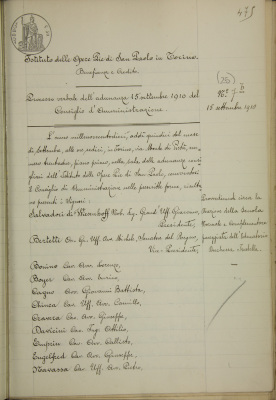 475
Istituto delle Opere Pie di San Paolo in Torino.
Beneficenza e Credito.
Processo verbale dell'adunanza 15 settembre 1910 del
Consiglio d'Amministrazione.
N.° 7
15 settembre 1910
L'anno millenovecentodieci, addì quindici del mese
di Settembre, alle ore sedici, in Torino, via Monte di Pietà, nu-
mero trentadue, piano primo, nella sala delle adunanze
dell'Istituto delle Opere Pie di San Paolo, convocatosi
il Consiglio di Amministrazione nelle prescritte forme,
presenti i Signori:
Salvadori di Wiesenhoff Nob. Ing. Grand' Uff. Giacomo,
Presidente,
Bertetti Cav. Gr. Uff. Avv. Michele, Senatore del Regno,
Vice-Presidente,
Borino Cav. Avv. Lorenzo,
Boyer Cav. Avv. Enrico,
Cagno Avv. Giovanni Battista,
Chiesa Cav. Uff. Avv. Camillo,
Cravera Cav. Avv. Giuseppe,
Davicini Cav. Ing. Attilio,
Cav. Avv. Callisto,
Engelfred Cav. Avv. Giuseppe,
Ravassa Cav. Uff. Avv. Pietro,
circa la
della Scuola